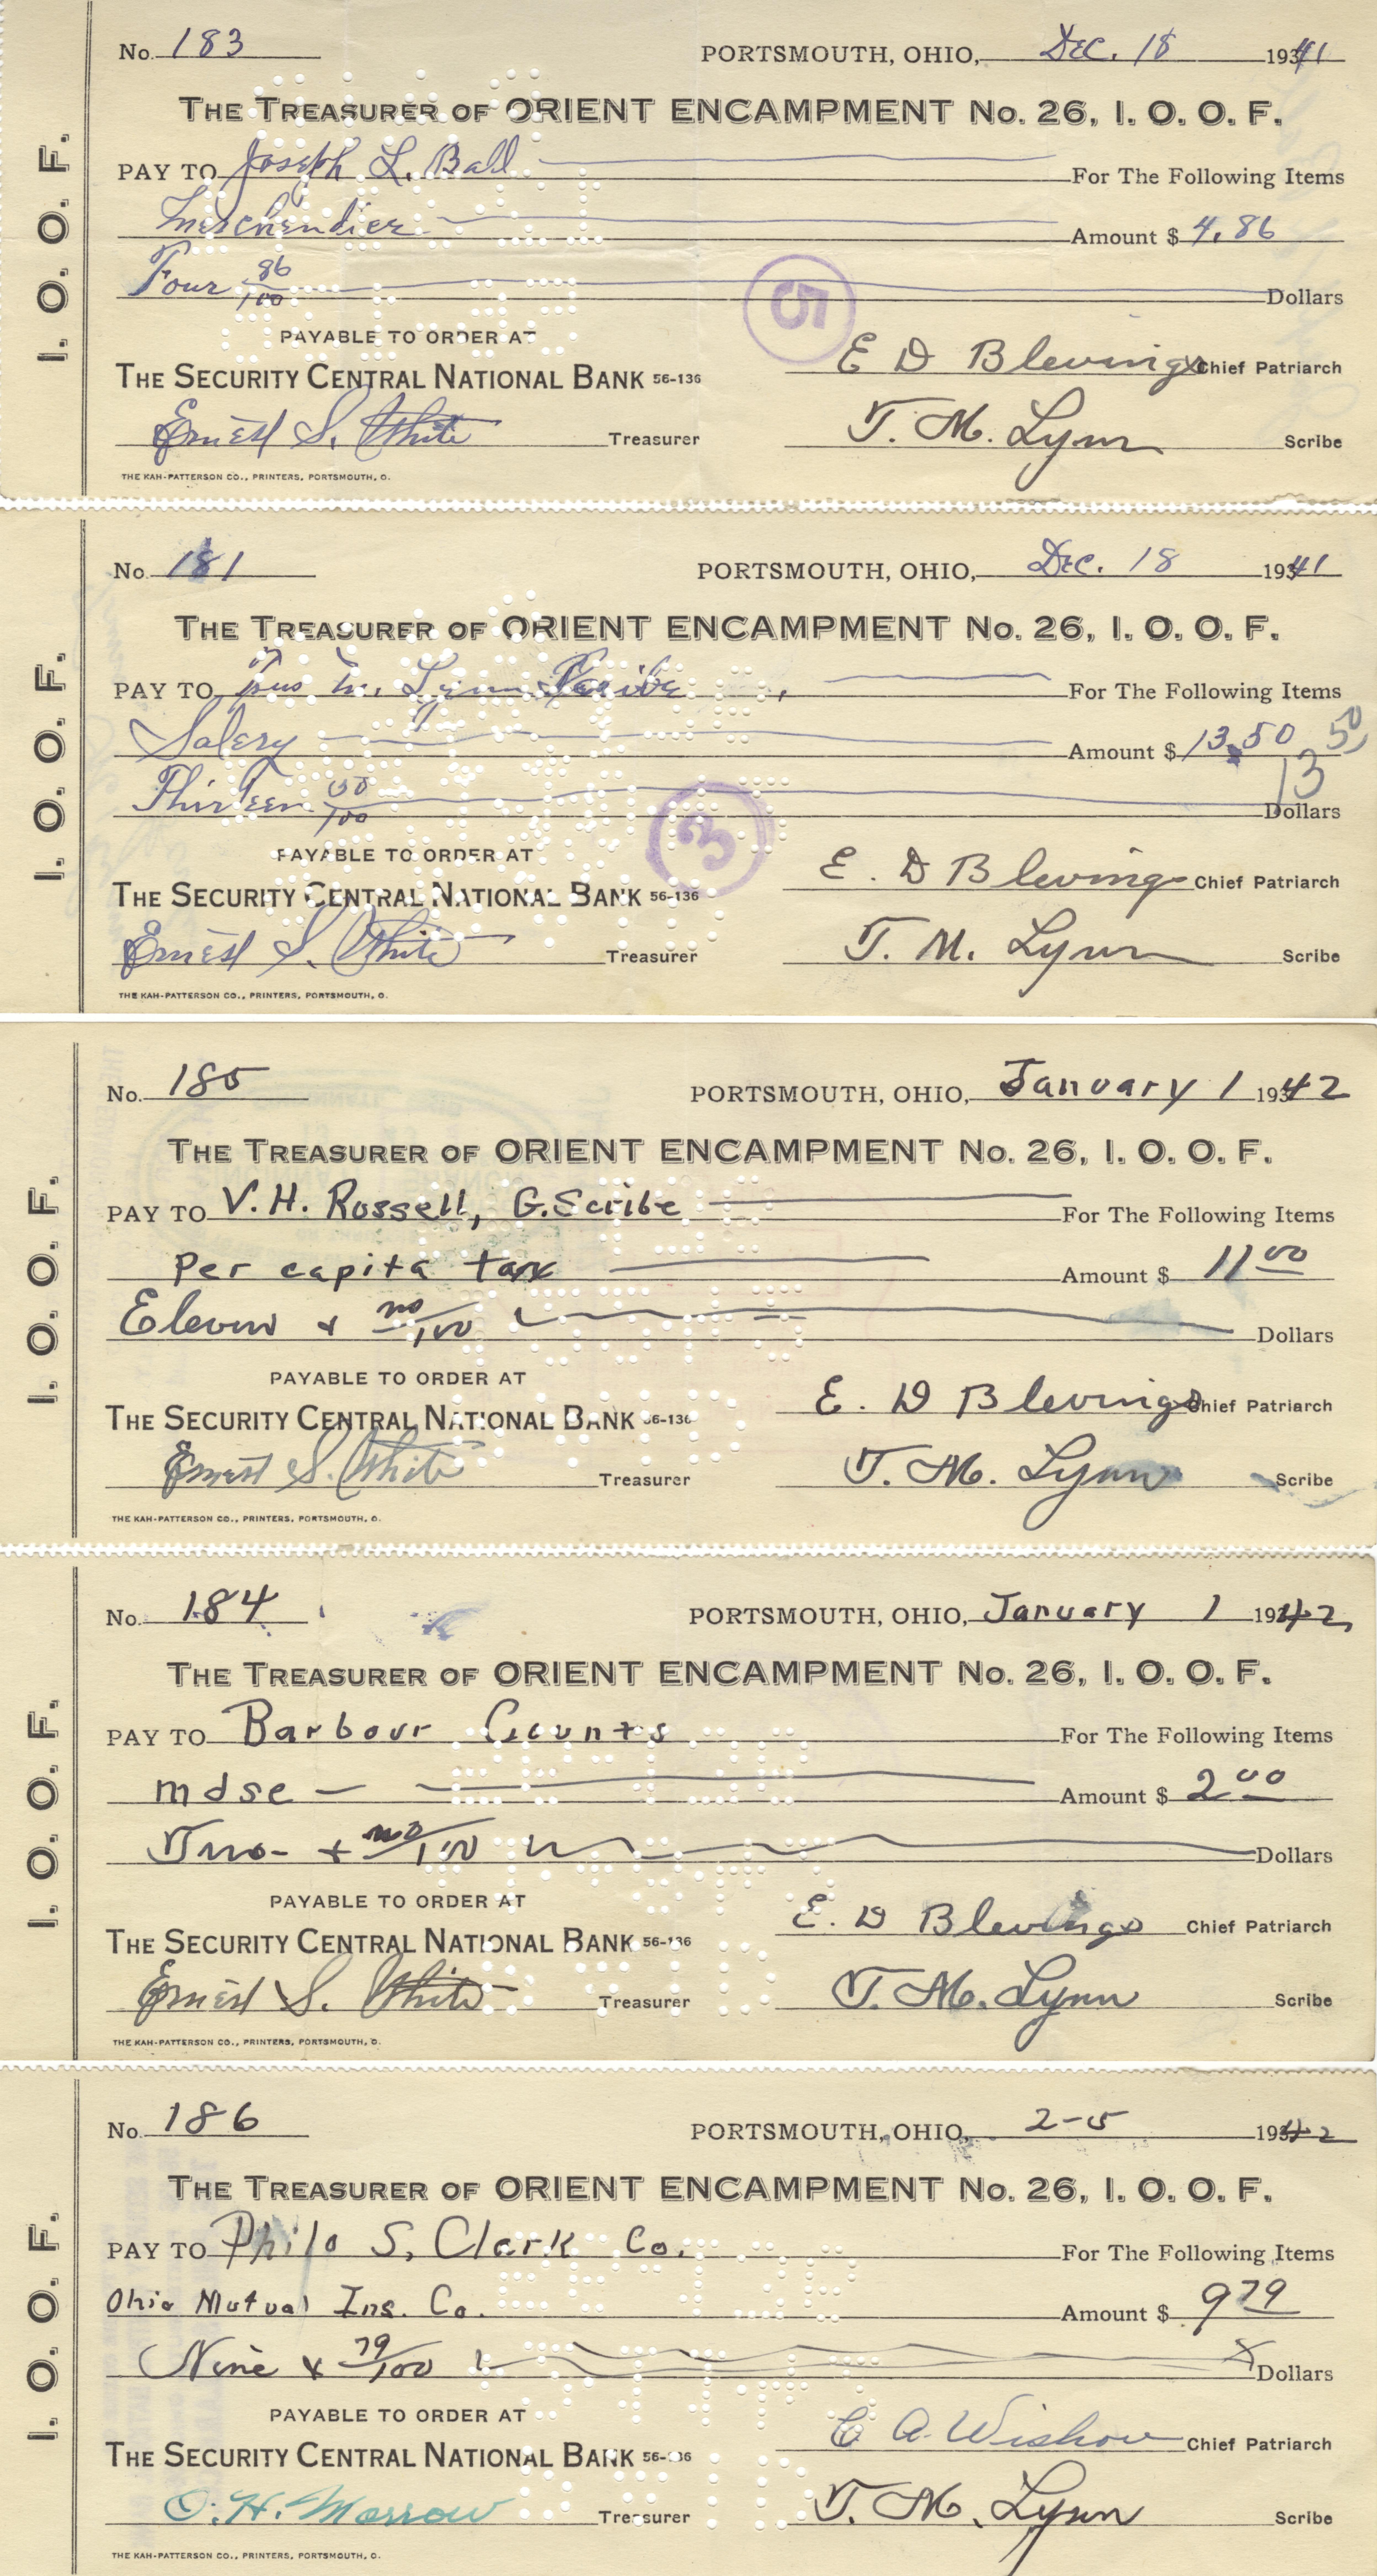 I. O. O. F.
No. 183 PORTSMOUTH, OHIO, Dec. 18 1941
THE TREASURER OF ORIENT ENCAMPMENT No. 26, I. O. O. F.
PAY TO Joseph L. Ball For The Following Items
Merchendise Amount $ 4.86
Four 86/100 Dollars
5
PAYABLE TO ORDER AT
E D Blevings Chief Patriarch
THE SECURITY CENTRAL NATIONAL BANK 56-136
Ernest S. White Treasurer T. M. Lynn Scribe
THE KAH-PATTERSON CO., PRINTERS, PORTSMOUTH, O.
I. O. O. F.
No. 181 PORTSMOUTH, OHIO, Dec. 18 1941
THE TREASURER OF ORIENT ENCAMPMENT No. 26, I. O. O. F.
PAY TO M. Lynn Scribe For The Following Items
Salery Amount $ 13.50 13 50
Thirteen 50/100 Dollars
3
PAYABLE TO ORDER AT
E. D Blevings Chief Patriarch
THE SECURITY CENTRAL NATIONAL BANK 56-136
Ernest S. White Treasurer T. M. Lynn Scribe
THE KAH-PATTERSON CO., PRINTERS, PORTSMOUTH, O.
I. O. O. F.
No. 185 PORTSMOUTH, OHIO, January 1 1942
THE TREASURER OF ORIENT ENCAMPMENT No. 26, I. O. O. F.
PAY TO V. H. Rossell, G. Scribe For The Following Items
Per capita tax Amount $ 11 00
Eleven & no/100 Dollars
PAYABLE TO ORDER AT
E. D Blevings Chief Patriarch
THE SECURITY CENTRAL NATIONAL BANK 56-136
Ernest S. White Treasurer T. M. Lynn Scribe
THE KAH-PATTERSON CO., PRINTERS, PORTSMOUTH, O.
I. O. O. F.
No. 184 PORTSMOUTH, OHIO, January 1 1942
THE TREASURER OF ORIENT ENCAMPMENT No. 26, I. O. O. F.
PAY TO Barbour Counts For The Following Items
mdse Amount $ 2 00
Two + no/100 Dollars
PAYABLE TO ORDER AT
E. D Blevings Chief Patriarch
THE SECURITY CENTRAL NATIONAL BANK 56-136
Ernest S. White Treasurer T. M. Lynn Scribe
THE KAH-PATTERSON CO., PRINTERS, PORTSMOUTH, O.
I. O. O. F.
No. 186 PORTSMOUTH, OHIO, 2-5 1942
THE TREASURER OF ORIENT ENCAMPMENT No. 26, I. O. O. F.
PAY TO Philo S. Clark Co. For The Following Items
Ohio Mutual Ins. Co. Amount $ 9 79
Nine & 79/100 Dollars
PAYABLE TO ORDER AT
C A. Wishon Chief Patriarch
THE SECURITY CENTRAL NATIONAL BANK 56-136
O. H. Morrow Treasurer T. M. Lynn Scribe
THE KAH-PATTERSON CO., PRINTERS, PORTSMOUTH, O.